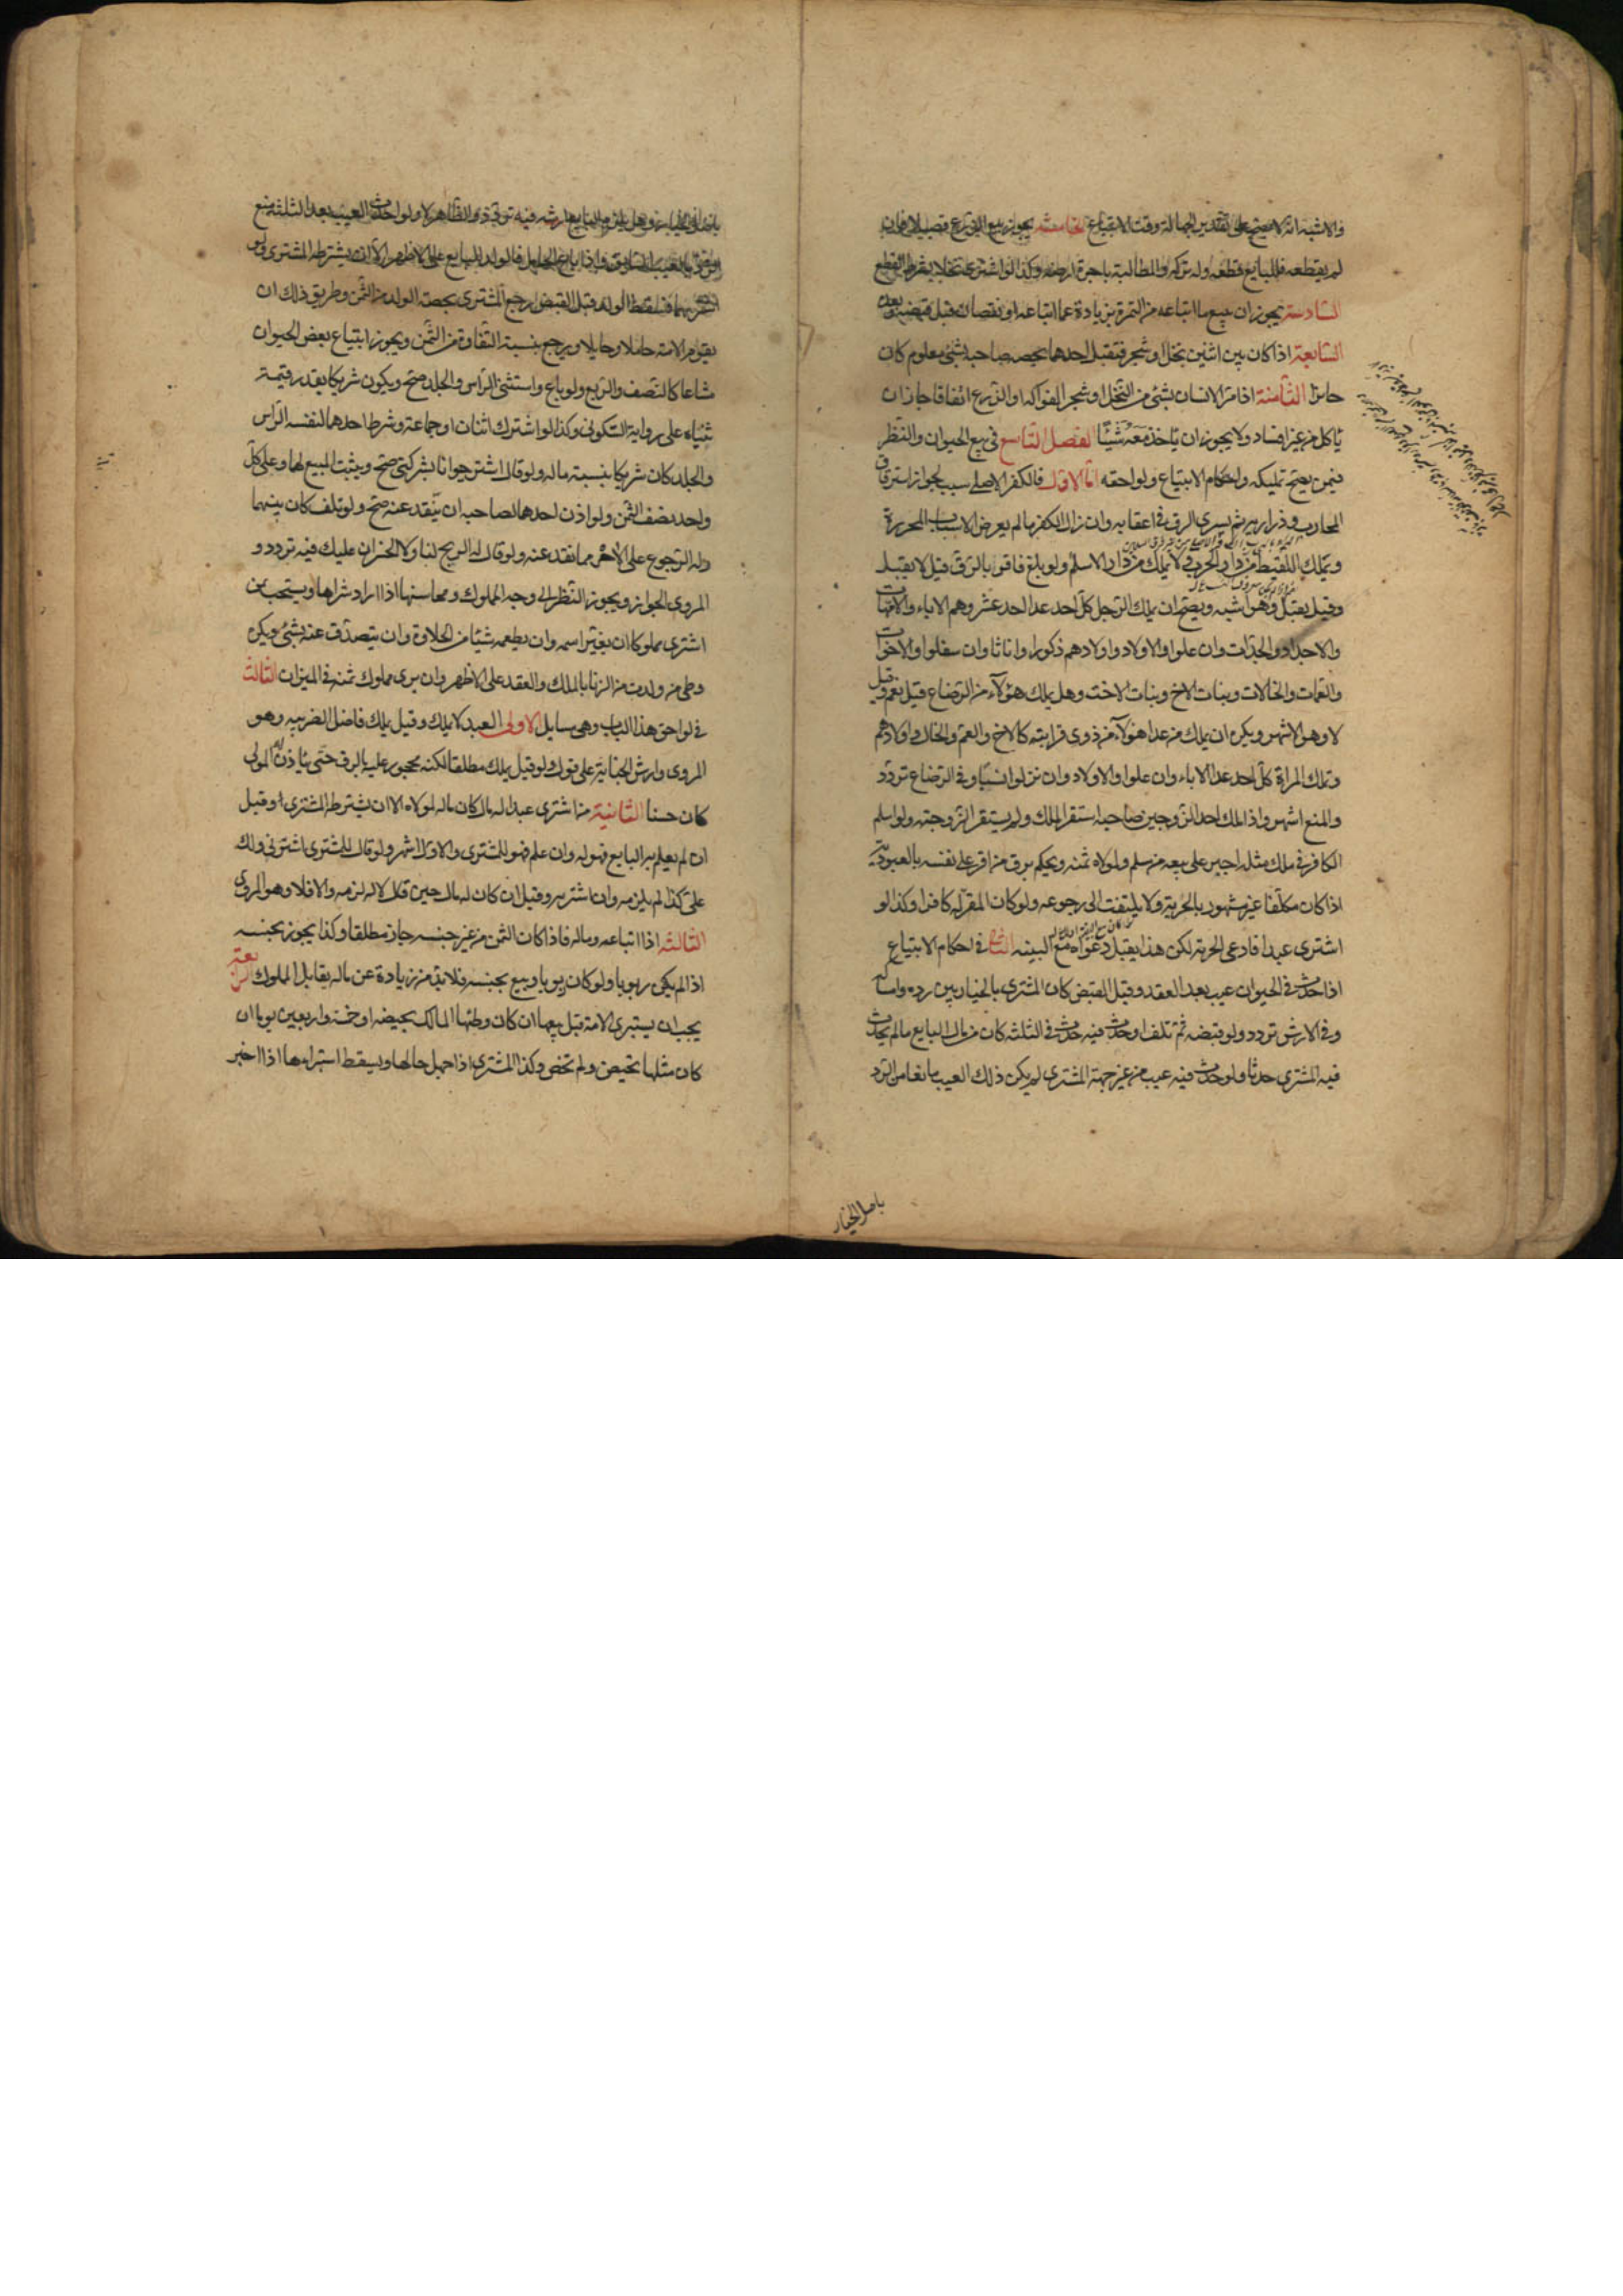 والاشبه انه لا يصح على تقدير الجهالة وقت الابتياع الخامسة يجوز بيع الزرع قصيلا فان
لم يقطعه فللبايع قطعه وله تركه والمطالبة باجرة ارضه وكذا لو اشترى نخلا بشرط القطع
السادسة يجوز ان يبيع ما ابتاعه من الثمرة بزيادة عما ابتاعه او نقصان قبل قبضه وبعده
السابعة اذا كان بين اثنين نخل او شجر فتقبل احدهما بحصة صاحبه بشئ معلوم كان
جايزا الثامنة اذا مر الانسان بشئ من النخل او شجر الفواكه او الزرع اتفاقا جاز ان
ياكل من غير افساد ولا يجوز ان ياخذ معه شيئا الفصل التاسع فى بيع الحيوان والنظر
فيمن يصح تمليكه واحكام الابتياع ولواحقه اما الاول فالكفر الاصلى سبب لجواز استرقاق
المحارب وذراريه ثم يسرى الرق فى اعقابه وان زال الكفر ما لم يعرض الاسباب المحررة
ويملك اللقيط من دار الحرب ولا يملك من دار الاسلام ولو بلغ فاقر بالرق قيل لا يقبل
وقيل يقبل وهو اشبه ويصح ان يملك الرجل كل احد عدا احد عشر وهم الاباء والامهات
والاجداد والجدات وان علوا والاولاد واولادهم ذكورا واناثا وان سفلوا والاخوات
والعمات والخالات وبنات الاخ وبنات الاخت وهل يملك هؤلاء من الرضاع قيل نعم وقيل
لا وهو الاشهر ويكره ان يملك من عدا هؤلاء من ذوى قرابته كالاخ والعم والخال واولادهم
وتملك المراة كل احد عدا الاباء وان علوا والاولاد وان نزلوا نسبا وفى الرضاع تردد
والمنع اشهر واذا ملك احد الزوجين صاحبه استقر الملك ولم يستقر الزوجية ولو اسلم
الكافر فى ملك مثله اجبر على بيعه من مسلم ولمولاه ثمنه ويحكم برق من اقر على نفسه بالعبودية
اذا كان مكلفا غير مشهور بالحرية ولا يلتفت الى رجوعه ولو كان المقر له كافرا وكذا لو
اشترى عبدا فادعى الحرية لكن هذا يقبل دعواه مع البينه الثانى فى احكام الابتياع
اذا حدث فى الحيوان عيب بعد العقد وقبل القبض كان المشترى بالخيار بين رده وامساكه
وفى الارش تردد ولو قبضه ثم تلف او حدث فيه حدث فى الثلثة كان من مال البايع ما لم يحدث
فيه المشترى حدثا ولو حدث فيه عيب من غير جهة المشترى لم يكن ذلك العيب مانعا من الرد
باصل الخيار
باصل الخيار وهل يلزم البايع ارشه فيه تردد والظاهر لا ولو حدث العيب بعد الثلثة منع
الرد بالعيب السابق واذا باع الحامل فالولد للبايع على الاظهر الا ان يشترطه المشترى ولو
اشتريهما فسقط الولد قبل القبض رجع المشترى بحصة الولد من الثمن وطريق ذلك ان
يقوم الامة حاملا وحايلا ويرجع بنسبة التفاوت من الثمن ويجوز ابتياع بعض الحيوان
مشاعا كالنصف والربع ولو باع واستثنى الراس والجلد صح ويكون شريكا بقدر قيمة
ثنياه على رواية السكونى وكذا لو اشترك اثنان او جماعة وشرط احدهما لنفسه الراس
والجلد كان شريكا بنسبة ماله ولو قال اشتر حيوانا بشركتى صح ويثبت المبيع لهما وعلى كل
واحد نصف الثمن ولو اذن احدهما لصاحبه ان ينقد عنه صح ولو تلف كان بينهما
وله الرجوع على الاخر بما نقد عنه ولو قال له الربح لنا ولا الخسران عليك فيه تردد و
المروى الجواز ويجوز النظر الى وجه المملوك ومحاسنها اذا اراد شراها ويستحب لمن
اشترى مملوكا ان يغير اسمه وان يطعمه شيئا من الحلاوة وان يتصدق عنه بشئ ويكره
وطى من ولدت من الزنا بالملك والعقد على الاظهر وان يرى مملوك ثمنه فى الميزان الثالث
فى لواحق هذا الباب وهى مسايل الاولى العبد لا يملك وقيل يملك فاضل الضريبه وهو
المروى وارش الجناية على قول ولو قيل يملك مطلقا لكنه محجور عليه بالرق حتى ياذن له المولى
كان حسنا الثانية من اشترى عبدا له مال كان ماله لمولاه الا ان يشترطه المشترى وقيل
ان لم يعلم به البايع فهو له وان علم فهو للمشترى والاول اشهر ولو قال للمشترى اشترنى ولك
على كذا لم يلزمه وان اشتريه وقيل ان كان له مال حين قال له لزمه والا فلا وهو المروى
الثالثه اذا ابتاعه وماله فاذا كان الثمن من غير جنسه جاز مطلقا وكذا يجوز بجنسه
اذا لم يكن ربويا ولو كان ربويا وبيع بجنسه فلا بد من زيادة عن ماله يقابل المملوك الرابعة
يجب ان يستبرى الامة قبل بيعها ان كان وطئها المالك بحيضه او خمسة واربعين يوما ان
كان مثلها تحيض ولم تحض وكذا المشترى اذا جهل حالها ويسقط استبراءها اذا اخبر